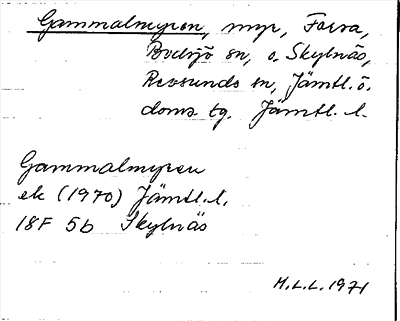 Gammalmyren, myr, Forsa,
Bodsjö sn, o. Skylnäs,
Revsunds sn, Jämtl. ö.
doms tg. Jämtl. l.
Gammalmyren
ek (1970) Jämtl. l.
18F 5b Skylnäs
M.L.L. 1971